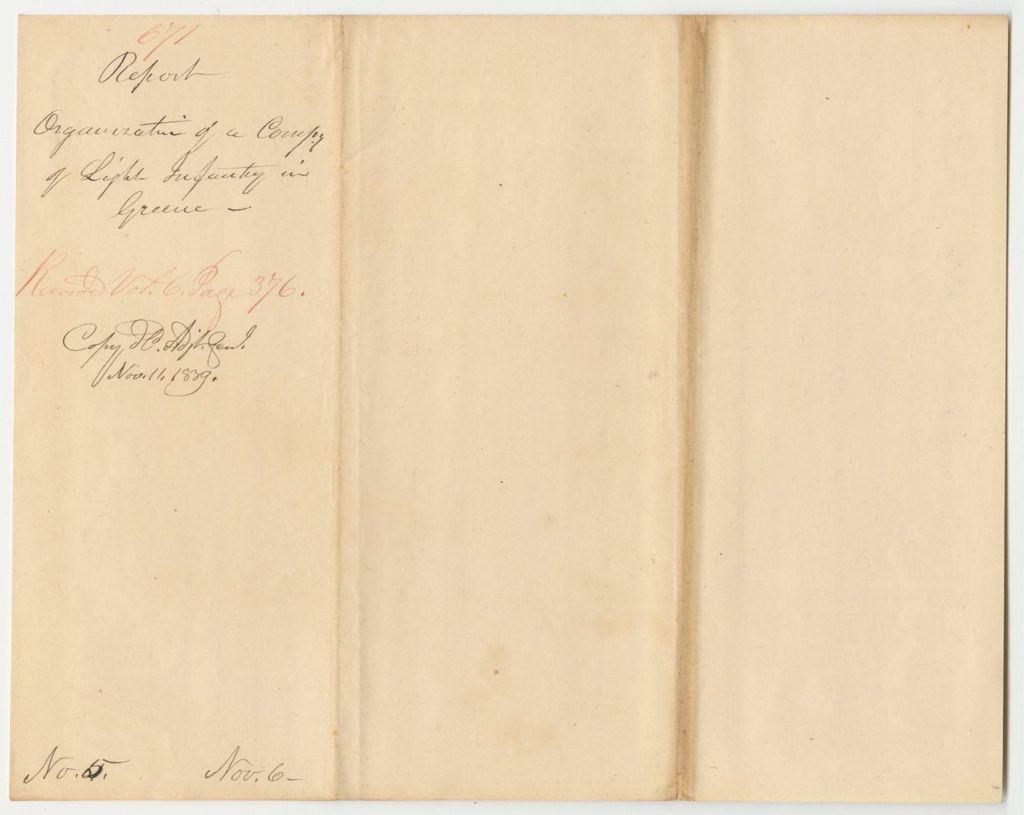 671
Report
Organization of a Compy
of Light Infantry in
Greene –
Recorded Vol. 6. Page 376.
Copy, Adjt. Genl.
Nov. 11, 1839.
No. 5. Nov. 6 –